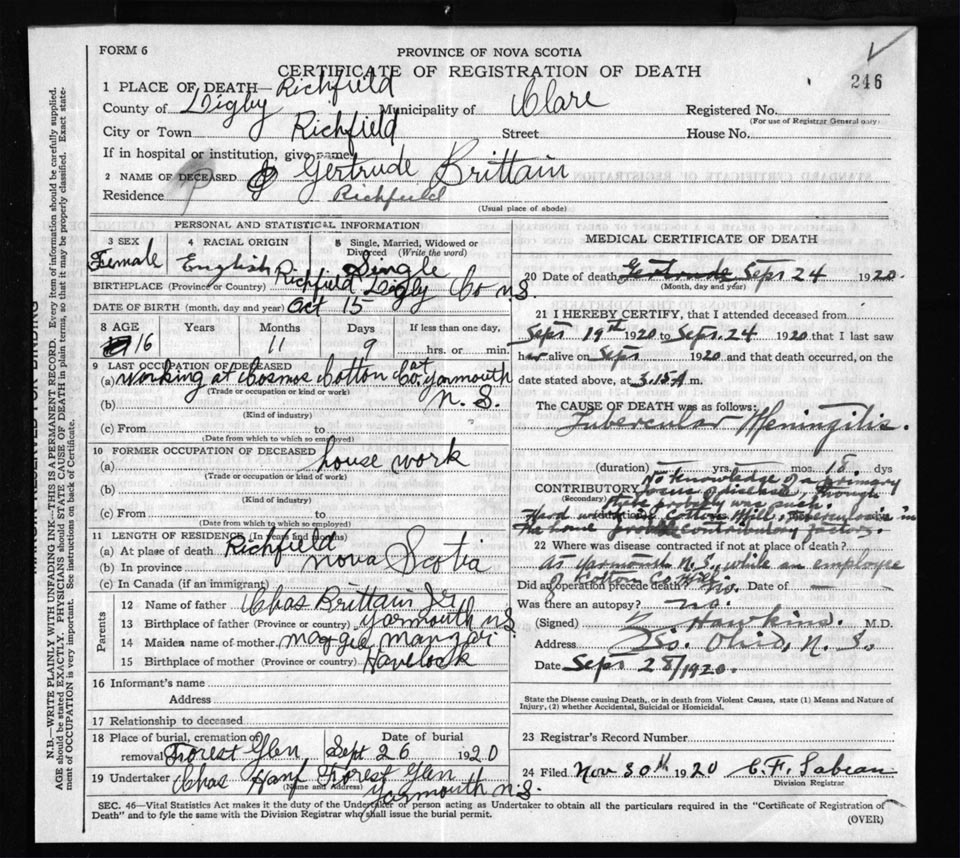 FORM 6
PROVINCE OF NOVA SCOTIA
CERTIFICATE OF REGISTRATION OF DEATH
246
1 PLACE OF DEATH—Richfield
County of Digby Municipality of Clare Registered No.
(For use of Registrar General only)
City or Town Richfield Street House No.
If in hospital or institution, give name
2 NAME OF DECEASED Gertrude Brittain
Residence Richfield
(Usual place of abode)
PERSONAL AND STATISTICAL INFORMATION
3 SEX 4 RACIAL ORIGIN 5 Single, Married, Widowed or
Divorced (Write the word)
Female English Single
BIRTHPLACE (Province or Country) Richfield Digby Co N.S.
DATE OF BIRTH (month, day and year) Oct 15
8 AGE Years Months Days If less than one day,
16 11 9 hrs. or min.
9 LAST OCCUPATION OF DECEASED
(a) working at Cosmos Cotton Co. at Yarmouth
(Trade or occupation or kind or work)
N. S.
(b)
(Kind of industry)
(c) From to
(Date from which to which so employed)
10 FORMER OCCUPATION OF DECEASED
(a) house work
(Trade or occupation or kind of work)
(b)
(Kind of industry)
(c) From to
(Date from which to which so employed)
11 LENGTH OF RESIDENCE (In years and months)
(a) At place of death Richfield
(b) In province Nova Scotia
(c) In Canada (if an immigrant)
Parents
12 Name of father Chas Brittain Jr
13 Birthplace of father (Province or country) Yarmouth N S
14 Maiden name of mother Maggie
15 Birthplace of mother (Province or country) Havelock
16 Informant's name
Address
17 Relationship to deceased
18 Place of burial, cremation of Date of burial
removal Forest Glen Sept 26 1920
19 Undertaker Chas Forest Glen
(Name and Address) Yarmouth N.S.
MEDICAL CERTIFICATE OF DEATH
20 Date of death Gertrude Sept 24 1920.
(Month, day and year)
21 I HEREBY CERTIFY, that I attended deceased from
Sept 19th 1920 to Sept. 24 1920 that I last saw
her alive on Sept 1920 and that death occurred, on the
date stated above, at 3.15 A m.
The CAUSE OF DEATH was as follows:
Tubercular Meningitis.
(duration) yrs. mos. 18 dys
CONTRIBUTORY No knowledge of a primary
(Secondary) focus of disease, though
there probably was such.
Hard work in Cotton Mill, tuberculosis in
the home probable contributory
22 Where was disease contracted if not at place of death?
At Yarmouth N.S., while an employee
of Cotton Co Mill
Did an operation precede death? No. Date of
Was there an autopsy? no.
(Signed) Hawkins. M.D.
Address So. Ohio, N. S.
Date Sept 28/1920.
State the Disease causing Death, or in death from Violent Causes, state (1) Means and Nature of
Injury, (2) whether Accidental, Suicidal or Homicidal.
23 Registrar's Record Number
24 Filed Nov 30th 1920 C. F. Sabean
Division Registrar
SEC. 46—Vital Statistics Act makes it the duty of the Undertaker or person acting as Undertaker to obtain all the particulars required in the "Certificate of Registration of
Death" and to fyle the same with the Division Registrar who shall issue the burial permit.
(OVER)
MARGIN RESERVED FOR BINDING
N.B.—WRITE PLAINLY WITH UNFADING INK—THIS IS A PERMANENT RECORD. Every item of information should be carefully supplied.
AGE should be stated EXACTLY. PHYSICIANS should STATE CAUSE OF DEATH in plain terms, so that it may be properly classified. Exact state-
ment of OCCUPATION is very important. See instructions on back of Certificate.